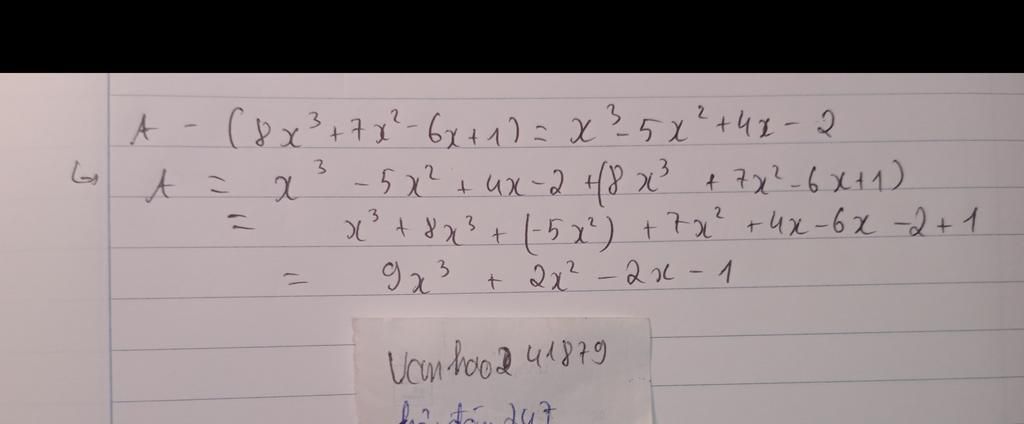 A - (8x³ + 7x² - 6x + 1) = x³ - 5x² + 4x - 2
↪ A = x³ - 5x² + 4x - 2 + (8x³ + 7x² - 6x + 1)
= x³ + 8x³ + (-5x²) + 7x² + 4x - 6x - 2 + 1
= 9x³ + 2x² - 2x - 1
41879
247